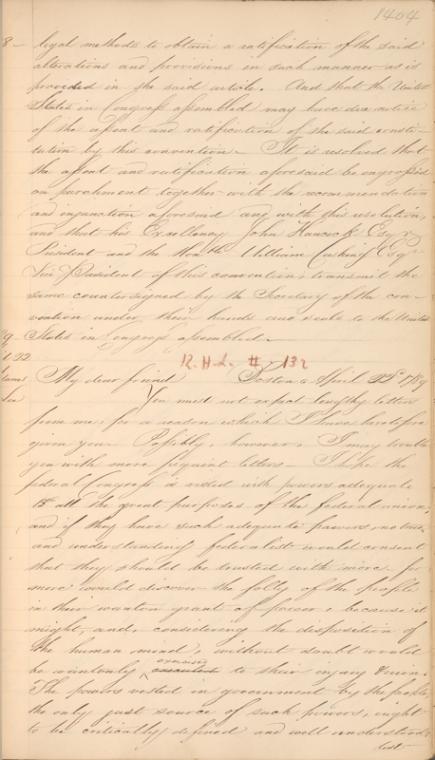 1404
8 – legal methods to obtain a ratification of the said
alterations and provisions in such manner as is
provided in the said article. And that the United
States in Congress assembled may have due notice
of the assent and ratification of the said consti-
tution by this convention – It is resolved that
the assent and ratification aforesaid be engrossed
on parchment together with the recommendation
and injunction aforesaid and with this resolution;
and that his Excellency John Hancock Esqr
President and the Honble William Cushing Esqr
Vice President of this convention, transmit the
same countersigned by the Secretary of the con-
vention under their hands and seals to the United
States in Congress assembled.
R. H. L. # 132
My dear friend Boston April 22d 1789
You must not expect lengthy letters
from me, for a reason which I have heretofore
given you. Possibly, however, I may trouble
you with more frequent letters – I hope the
federal Congress is vested with powers adequate
to all the great purposes of the federal union;
and if they have such adequate powers, no true
and understanding federalist would consent
that they should be trusted with more – for
more would discover the folly of the people
in their wanton grant of power, because it
might, and, considering the disposition of
the human mind, without doubt would
be wantonly exercised to their injury & ruin.
The powers vested in government by the people,
the only just source of such powers, ought
to be critically defined and well understood;
lest